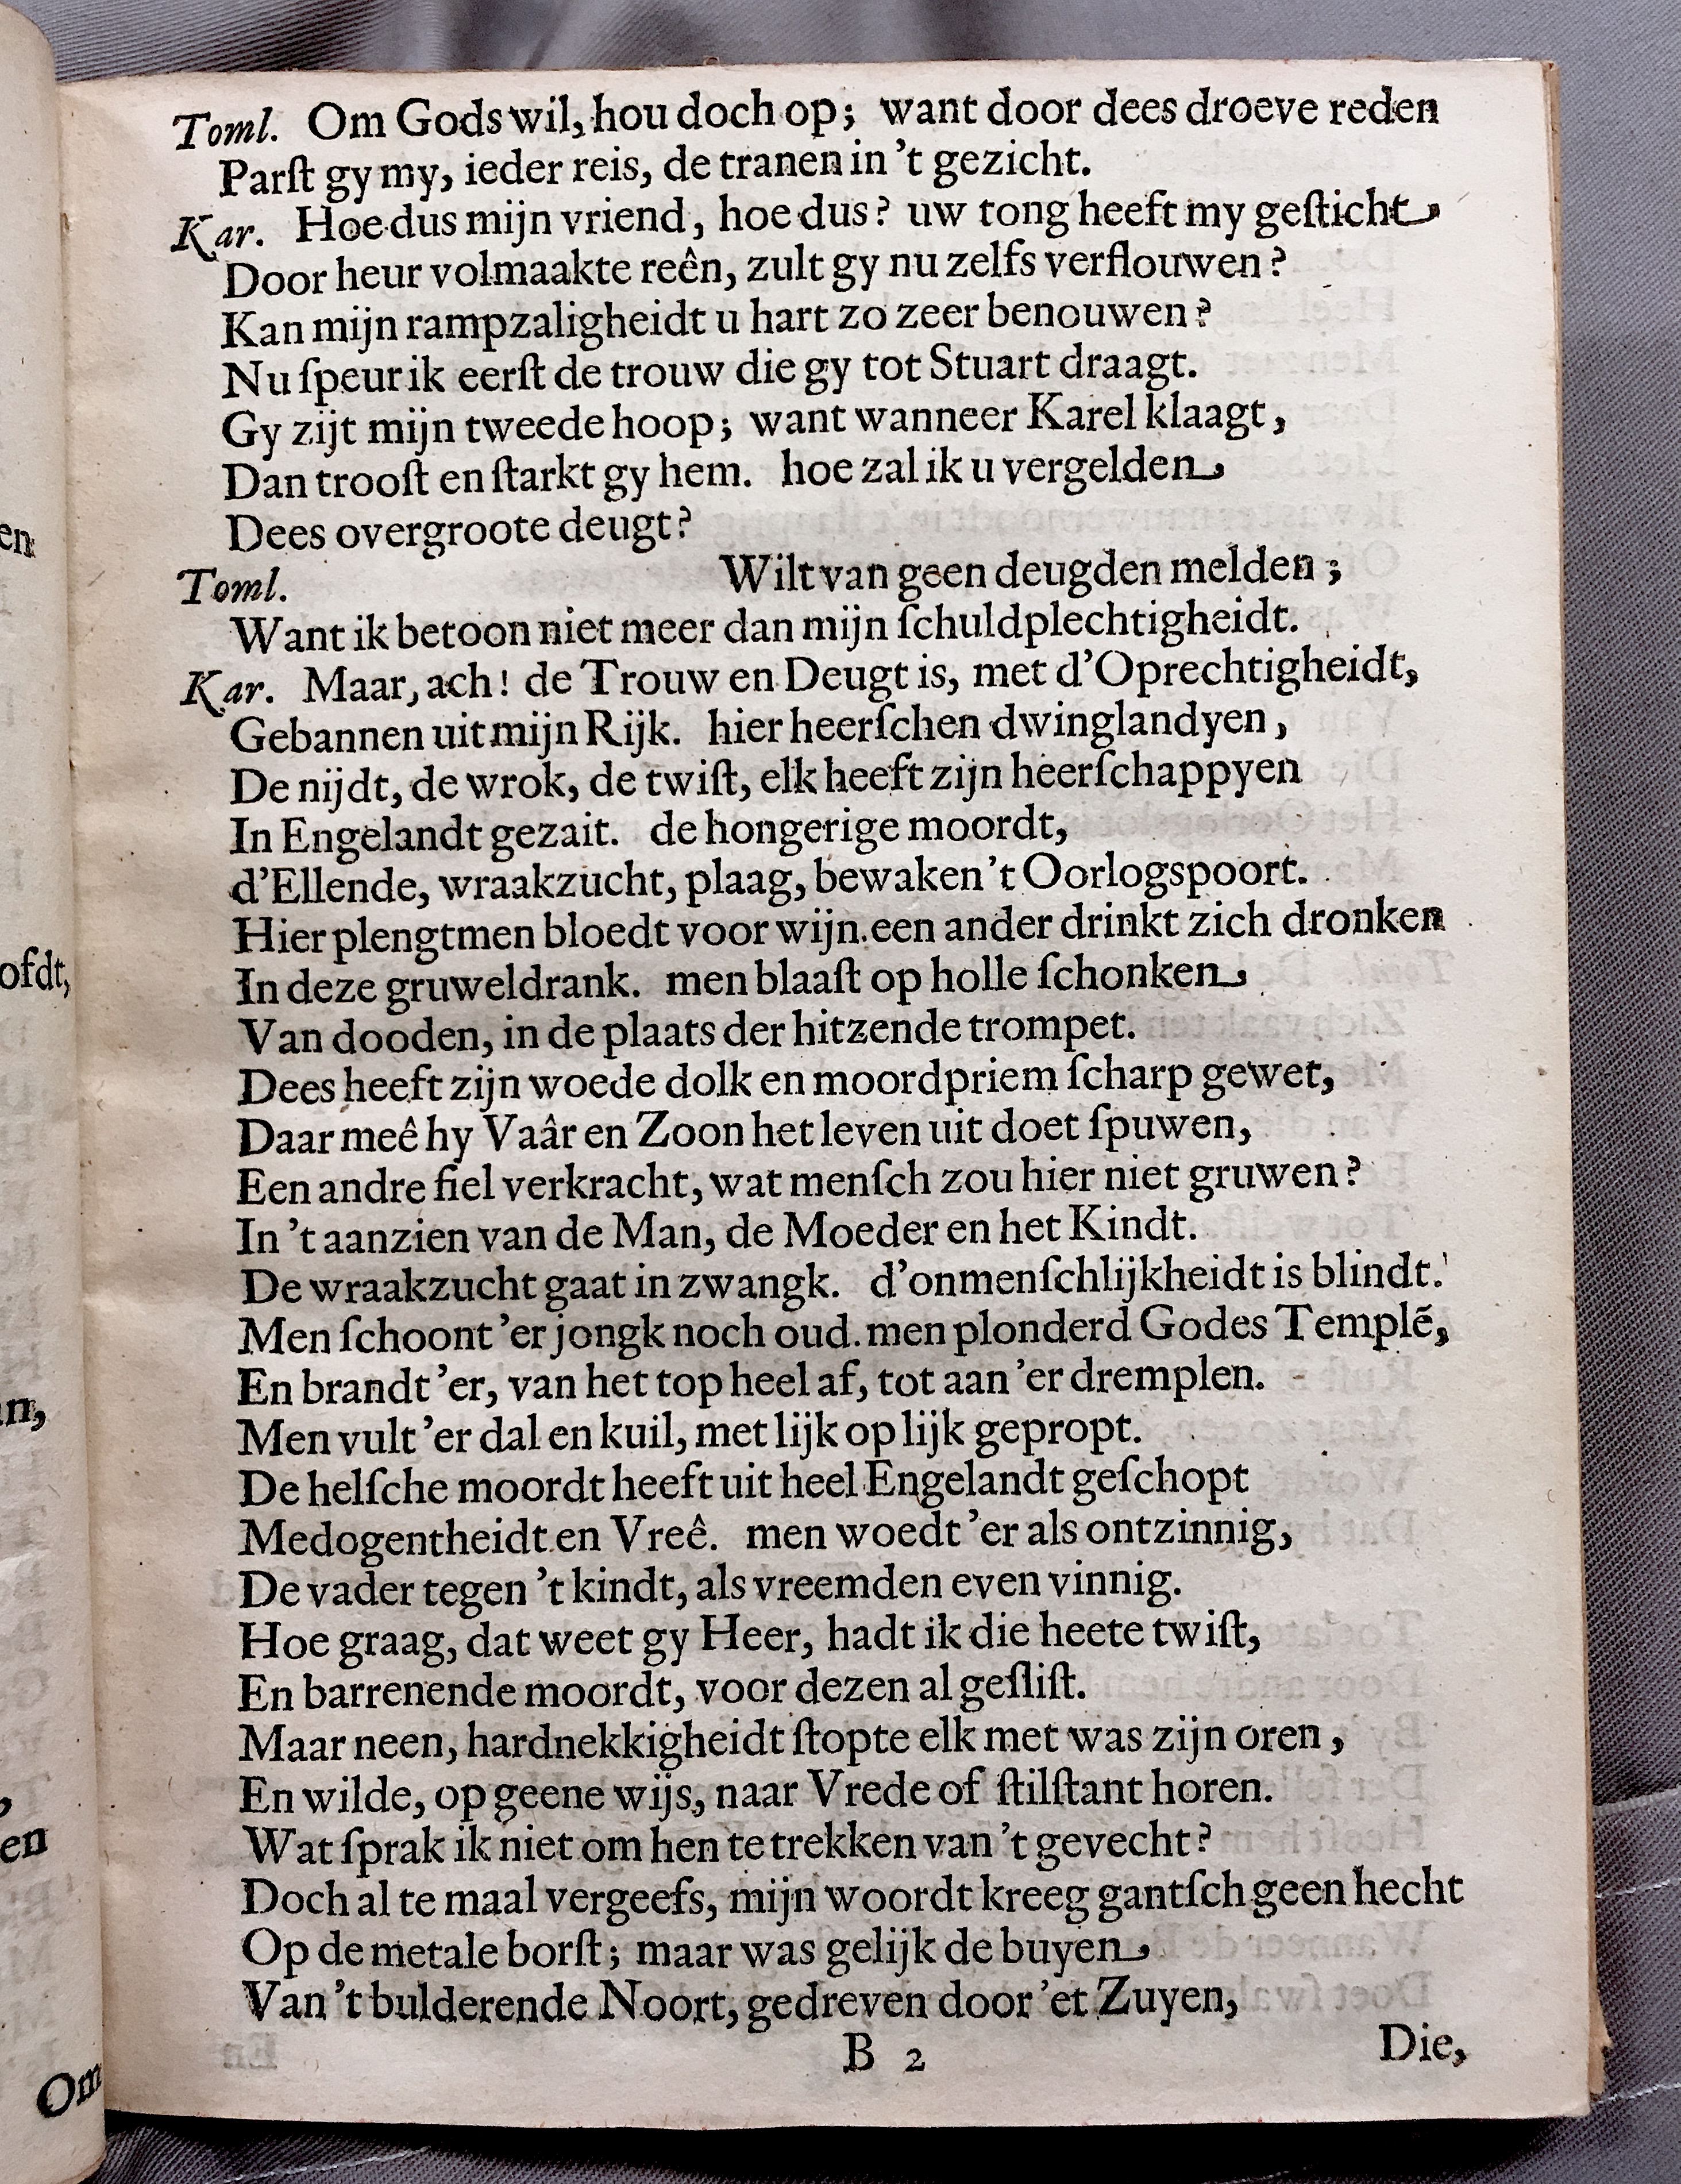 Toml. Om Gods wil, hou doch op; want door dees droeve reden
Parſt gy my, ieder reis, de tranen in 't gezicht.
Kar. Hoe dus mijn vriend, hoe dus? uw tong heeft my geſticht
Door heur volmaakte reên, zult gy nu zelfs verflouwen?
Kan mijn rampzaligheidt u hart zo zeer benouwen?
Nu ſpeur ik eerſt de trouw die gy tot Stuart draagt.
Gy zijt mijn tweede hoop; want wanneer Karel klaagt,
Dan trooſt en ſtarkt gy hem. hoe zal ik u vergelden
Dees overgroote deugt?
Toml. Wilt van geen deugden melden;
Want ik betoon niet meer dan mijn ſchuldplechtigheidt.
Kar. Maar, ach! de Trouw en Deugt is, met d'Oprechtigheidt,
Gebannen uit mijn Rijk. hier heerſchen dwinglandyen,
De nijdt, de wrok, de twiſt, elk heeft zijn heerſchappyen
In Engelandt gezait. de hongerige moordt,
d'Ellende, wraakzucht, plaag, bewaken 't Oorlogspoort.
Hier plengtmen bloedt voor wijn. een ander drinkt zich dronken
In deze gruweldrank. men blaaſt op holle ſchonken
Van dooden, in de plaats der hitzende trompet.
Dees heeft zijn woede dolk en moordpriem ſcharp gewet,
Daar meê hy Vaâr en Zoon het leven uit doet ſpuwen,
Een andre fiel verkracht, wat menſch zou hier niet gruwen?
In 't aanzien van de Man, de Moeder en het Kindt.
De wraakzucht gaat in zwangk. d'onmenſchlijkheidt is blindt.
Men ſchoont 'er jongk noch oud. men plonderd Godes Templẽ,
En brandt 'er, van het top heel af, tot aan 'er dremplen.
Men vult 'er dal en kuil, met lijk op lijk gepropt.
De helſche moordt heeft uit heel Engelandt geſchopt
Medogentheidt en Vreê. men woedt 'er als ontzinnig,
De vader tegen 't kindt, als vreemden even vinnig.
Hoe graag, dat weet gy Heer, hadt ik die heete twiſt,
En barrenende moordt, voor dezen al geſliſt.
Maar neen, hardnekkigheidt ſtopte elk met was zijn oren,
En wilde, op geene wijs, naar Vrede of ſtilſtant horen.
Wat ſprak ik niet om hen te trekken van 't gevecht?
Doch al te maal vergeefs, mijn woordt kreeg gantſch geen hecht
Op de metale borſt; maar was gelijk de buyen
Van 't bulderende Noort, gedreven door 'et Zuyen,
B 2 Die,
en
ofdt,
n,
,
en
Om